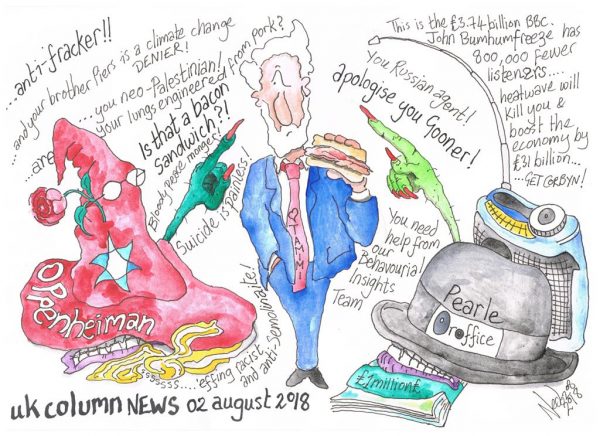 ...anti-fracker!!
...and your brother Piers is a climate change
DENIER!
...you neo-Palestinian!
...are your lungs engineered from pork?
Is that a bacon
sandwich?!
Bloody peace monger!
Suicide is painless!
You Russian agent!
apologise you Gooner!
This is the £3.74 billion BBC.
John Bumhumfreeze has
800,000 fewer
listeners....
heatwave will
kill you &
boost the
economy by
£31 billion...
...GET CORBYN!
You need
help from
our
Behavourial
Insights
Team
OPPenheiman
Pearle
office
£1million£
ssssss.....'effing racist
and anti-semolinaite!
uk column NEWS 02 august 2018